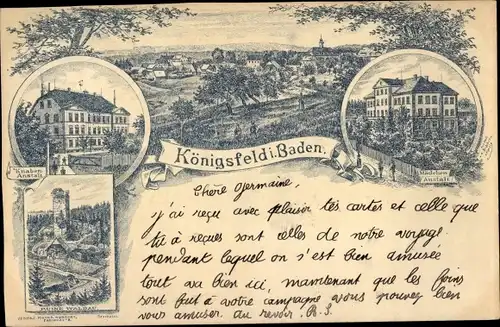 Königsfeld i. Baden.
Knaben Anstalt
Mädchen Anstalt
RUINE WALDAU
Chère Germaine,
j'ai reçu avec plaisir tes cartes et celle que
tu à reçues sont celles de notre voyage.
pendant lequel on s'est bien amusée
tout va bien ici, maintenant que les foins
sont fait à votre campagne vous pouvez bien
vous amuser. Au revoir. R. S.